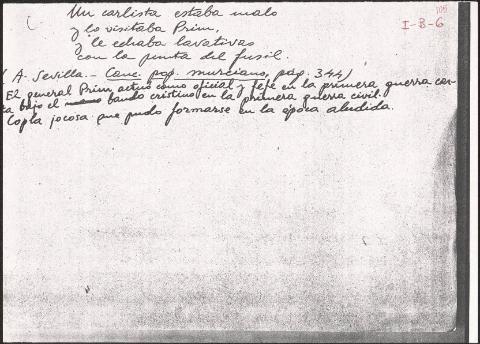 Un carlista estaba malo
y lo visitaba Prim,
y le echaba lavativas
con la punta del fusil.
105
I-B-6
(A. Sevilla.- Canc. pop. murciano, pág. 344)
El general Prim, actuó como oficial y jefe en la primera guerra car-
ta bajo el bando cristino en la primera guerra civil.
Copla jocosa que pudo formarse en la época aludida.